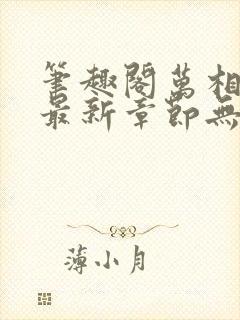 筆趣閣萬相
最新章節無
薄小月